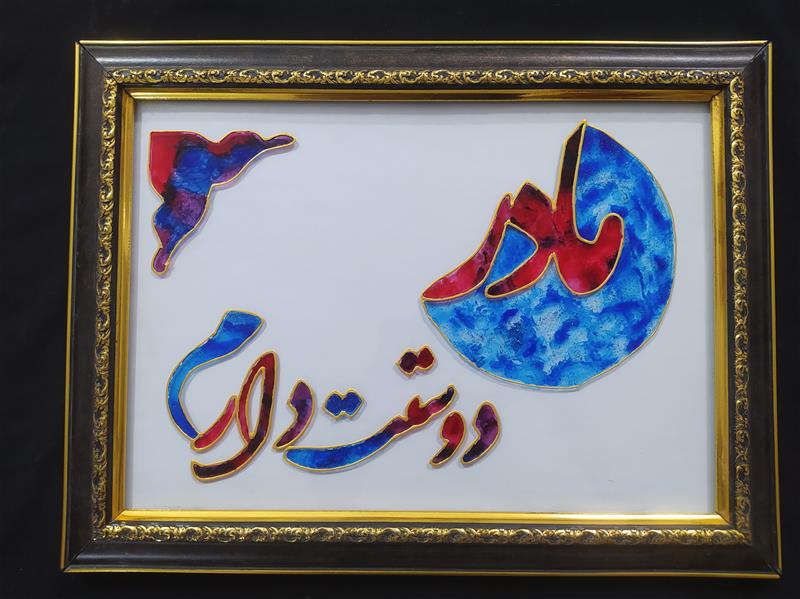 مادر
دوستت دارم